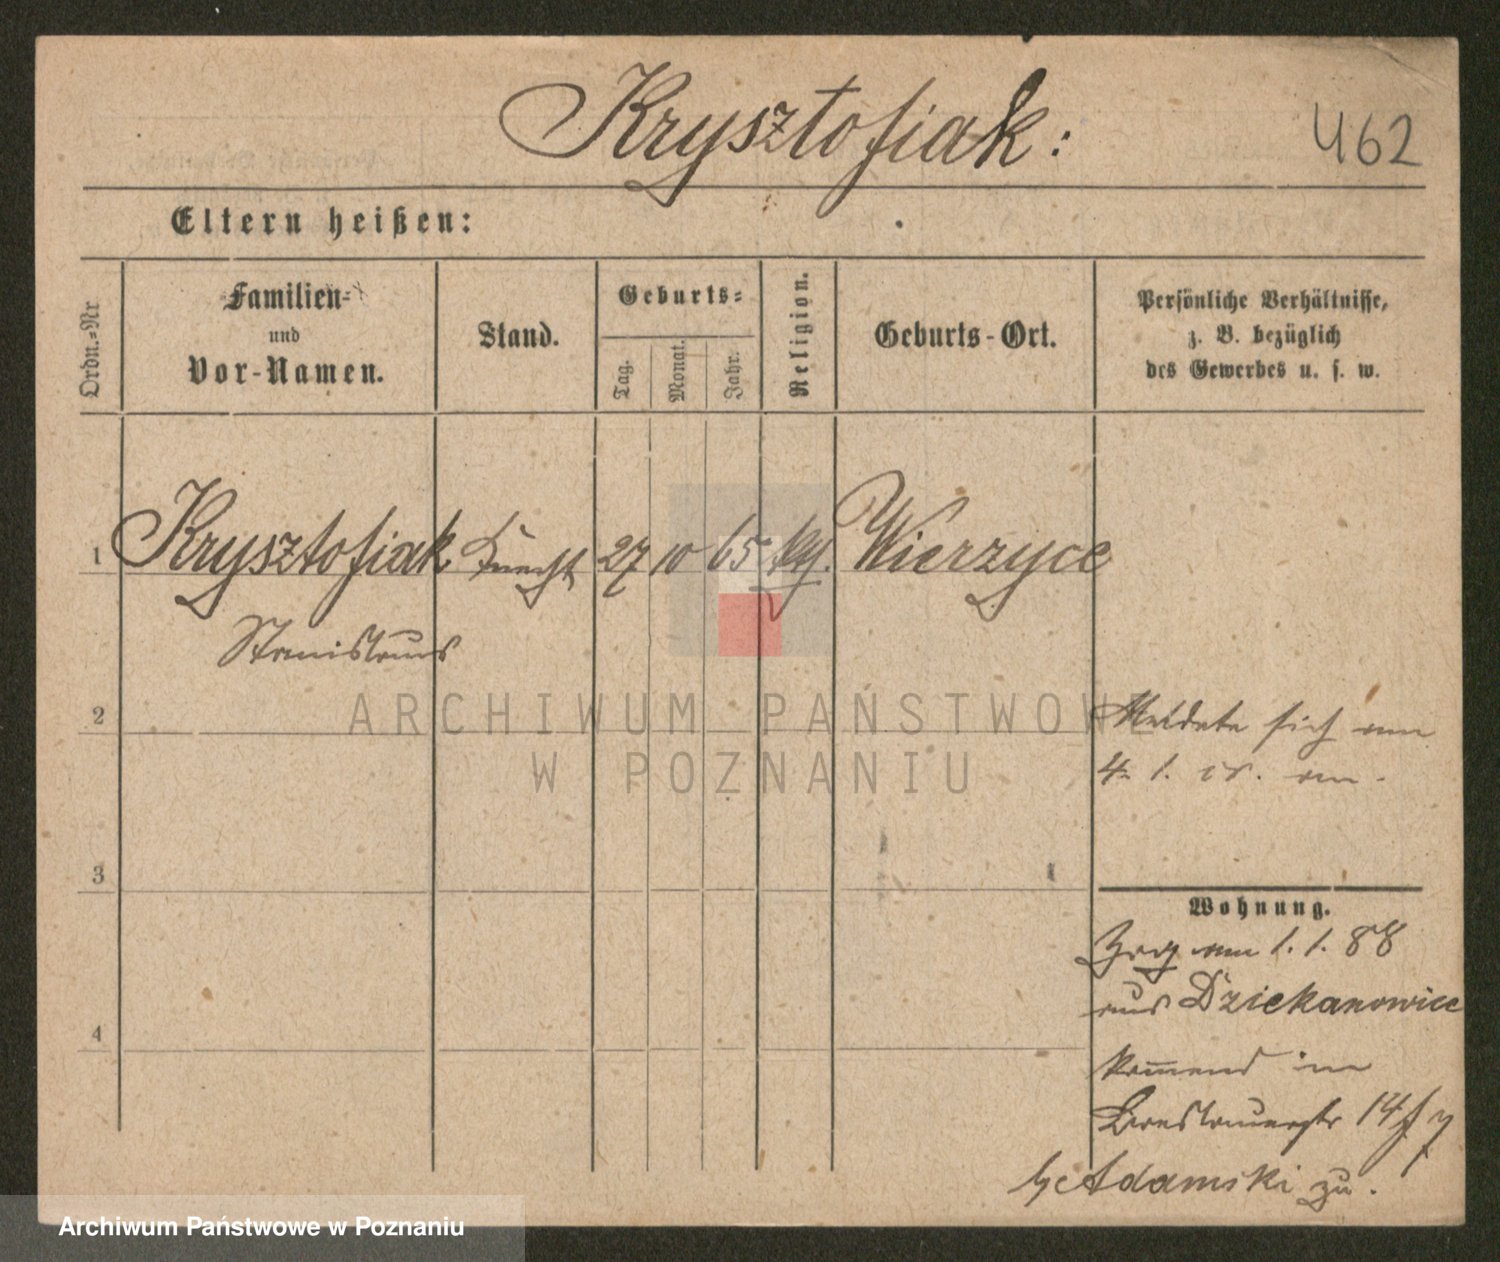 Krysztofiak:
462
Eltern heißen:
Ordn.=Nr
Familien=
und
Vor-Namen.
Stand.
Geburts=
Tag.
Monat.
Jahr.
Religion.
Geburts-Ort.
Persönliche Verhältnisse,
z. B. bezüglich
des Gewerbes u. s. w.
1 Krysztofiak Knecht 27 10 65 kth. Wierzyce
Stanislaus
2
3
4
Meldete sich am
4. 1. cr. an.
Wohnung.
Zog am 1. 1. 88
aus Dziekanowice
kommend in
14
Adamski zu.
ARCHIWUM PAŃSTWOWE
W POZNANIU
Archiwum Państwowe w Poznaniu